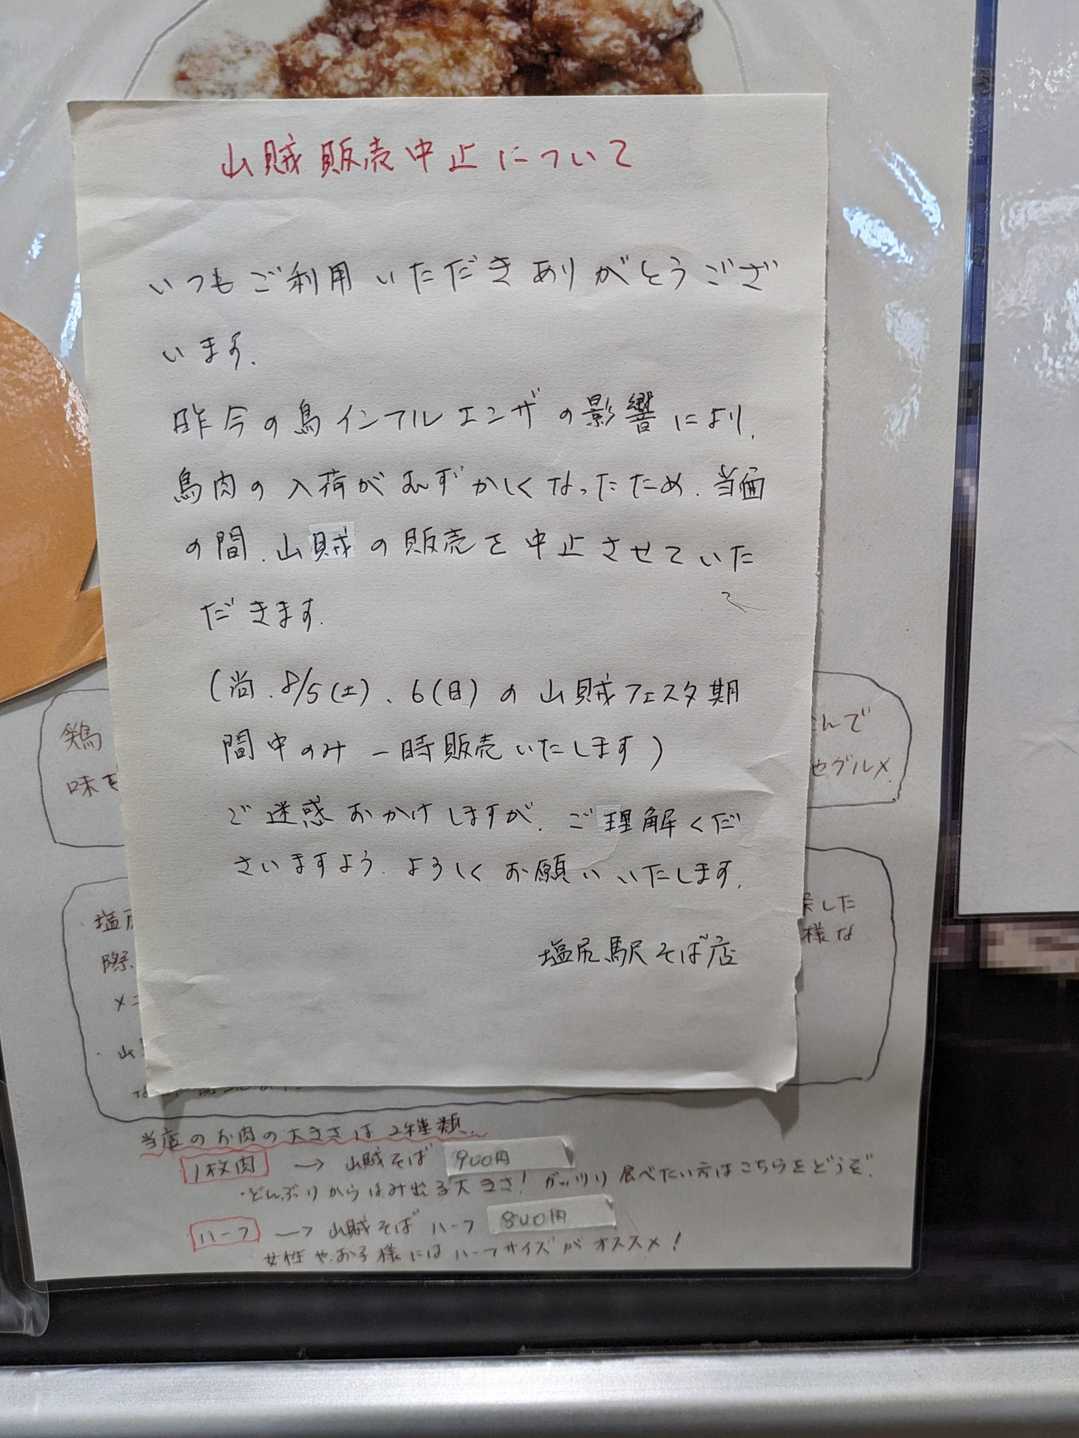 山賊販売中止について
いつもご利用いただきありがとうござ
います。
昨今の鳥インフルエンザの影響により、
鳥肉の入荷がむずかしくなったため、当面
の間、山賊の販売を中止させていた
だきます。
(尚、8/5(土)、6(日)の山賊フェスタ期
間中のみ一時販売いたします)
ご迷惑おかけしますが、ご理解くだ
さいますよう、よろしくお願いいたします。
塩尻駅そば店
鶏
んで
味を
やグルメ
・塩尻
した
際、
様な
メニ
・山
当店のお肉の大きさは2種類
1枚肉 → 山賊そば 900円
・どんぶりからはみ出る大きさ!ガッツリ食べたい方はこちらをどうぞ。
ハーフ → 山賊そばハーフ 800円
女性やお子様にはハーフサイズがオススメ!